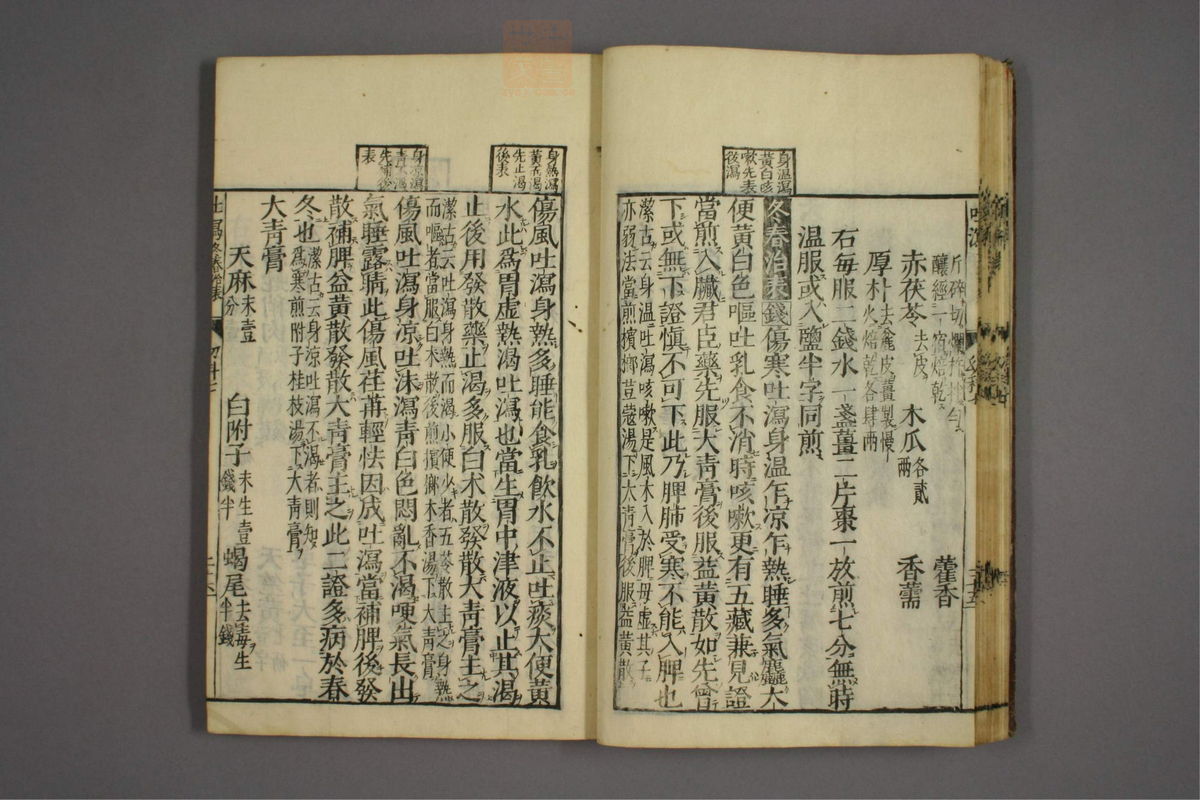 吐瀉
斤碎切
釀經一宿焙乾
藿香
赤茯苓去皮
木瓜各貳兩
香薷
厚朴去麄皮薑製慢火焙乾各肆兩
右每服二錢水一盞薑二片棗一放煎七分無時
溫服或入鹽半字同煎
身溫瀉
黃白咳
嗽先表
後瀉
冬春治表錢傷寒吐瀉身溫乍凉乍熱睡多氣麤大
便黃白色嘔吐乳食不消時咳嗽更有五藏兼見證
當煎入臟君臣藥先服大青膏後服益黃散如先曾
下或無下證愼不可下此乃脾肺受寒不能入脾也
潔古云身溫吐瀉咳嗽是風木入於脾母虛其子
亦弱法當煎檳榔荳蔻湯下大青膏後服益黃散
身熱瀉
黃多渴
先止渴
後表
傷風吐瀉身熱多睡能食乳飲水不止吐痰大便黃
水此爲胃虛熱渴吐瀉也當生胃中津液以止其渴
止後用發散藥止渴多服白朮散發散大青膏主之
潔古云吐瀉身熱而渴小便少者五苓散主之身熱
而嘔者當服白朮散後煎檳榔木香湯下大青膏
身凉瀉
青不渴
先補後
表
傷風吐瀉身凉吐沫瀉青白色悶亂不渴哽氣長出
氣睡露睛此傷風荏苒輕怯因成吐瀉當補脾後發
散補脾益黃散發散大青膏主之此二證多病於春
冬也潔古云身凉吐瀉不渴者則知
爲寒煎附子桂枝湯下大青膏
大青膏
天麻末壹分
白附子末生壹錢半
蝎尾去毒生半錢
吐瀉冬春治表